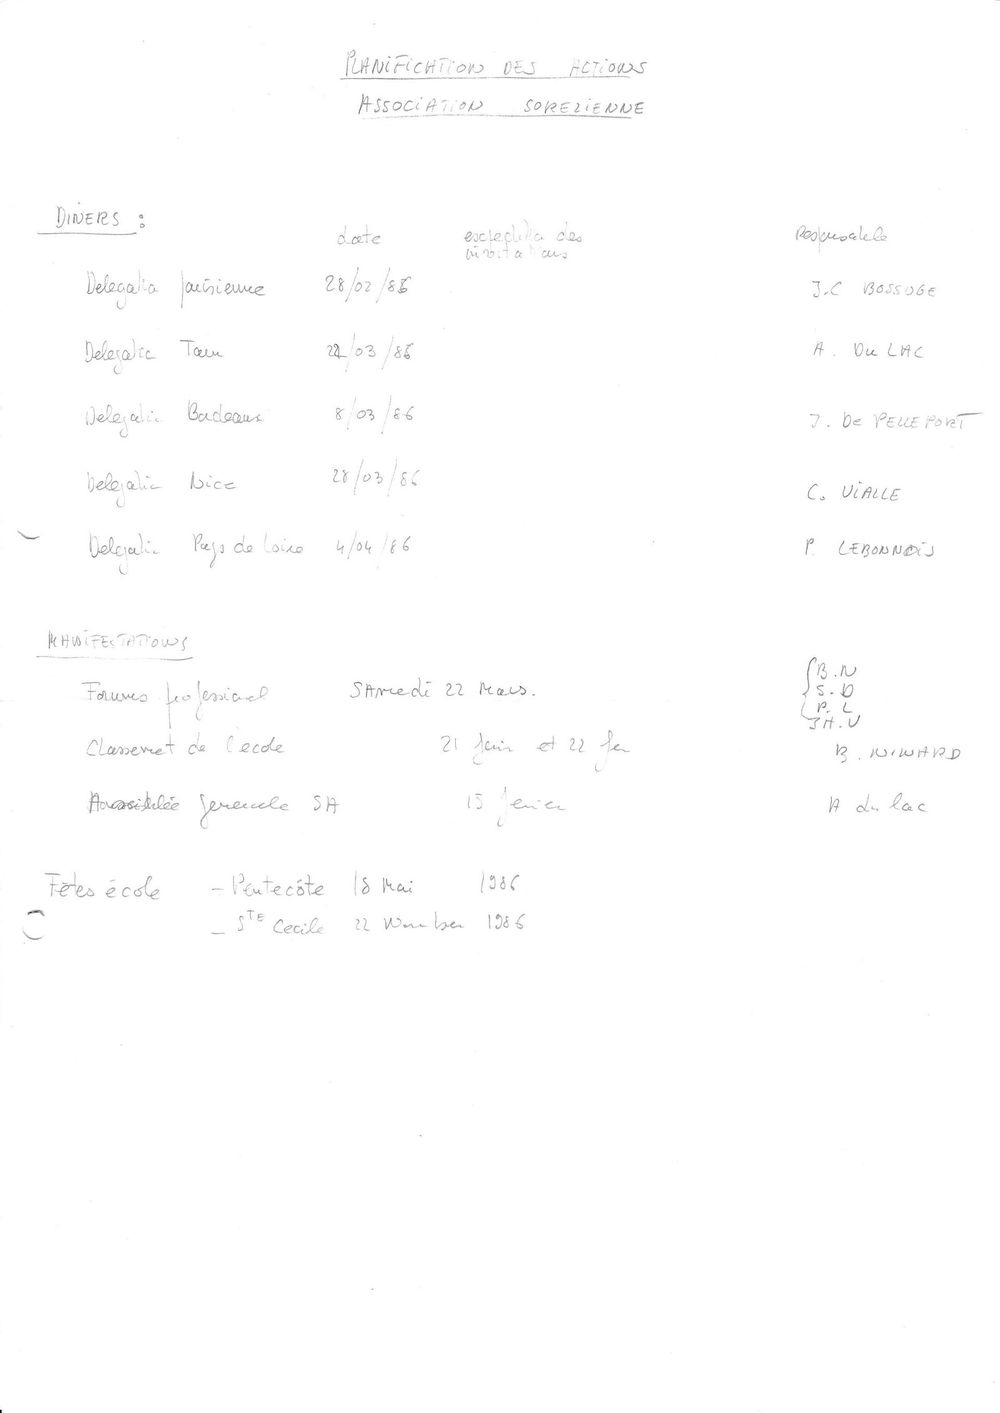 PLANIFICATION DES ACTIONS
ASSOCIATION SOREZIENNE
DINERS :
date des invitations Responsable
Delegation parisienne 28/02/86 J.C BOSSUGE
Delegation Tarn /03/86 A. Du LAC
Delegation Bordeaux 8/03/86 J. De PELLEPORT
Delegation Nice 28/03/86 C. VIALLE
Delegation Pays de Loire 4/04/86 P. LEBONNOIS
MANIFESTATIONS
Forums professionel SAmedi 22 Mars. B.N
S.D
P.L
JH.V
Classement de l'ecole 21 Juin et 22 B. NINARD
Assemblée generale SA 15 fevrier A du lac
Fêtes école - Pentecôte 18 Mai 1986
- STE Cecile 22 November 1986